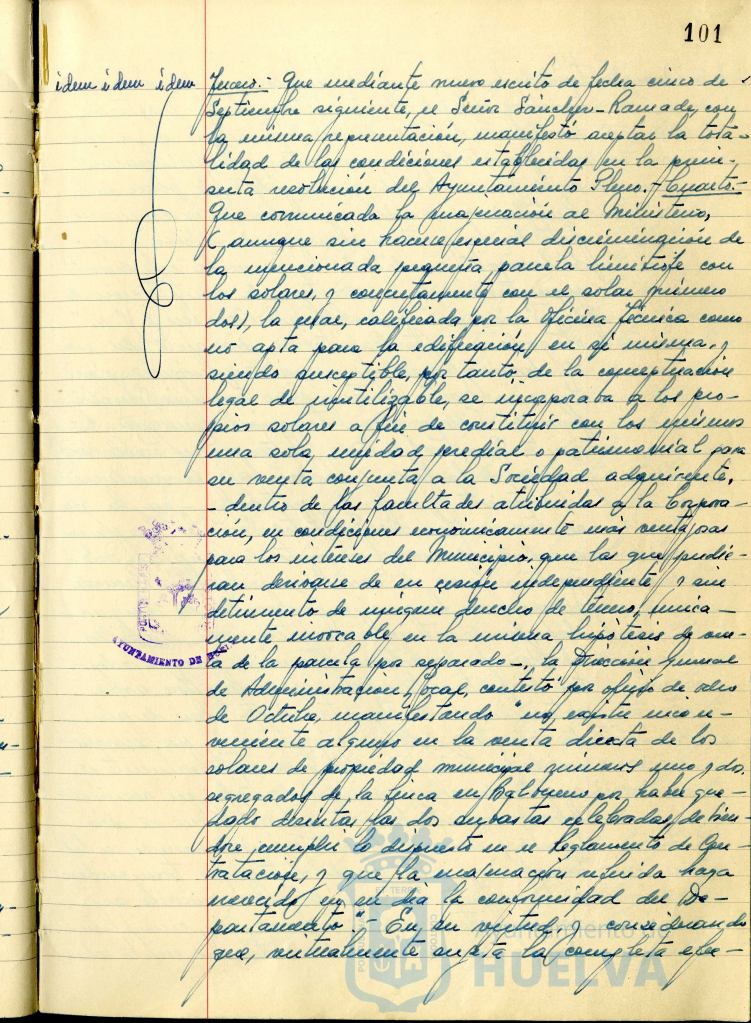 101
idem idem idem
Tercero.- Que mediante nuevo escrito de fecha cinco de
Septiembre siguiente, el Señor Sánchez-Ramade, con
la misma representación, manifestó aceptar la tota-
lidad de las condiciones establecidas en la prein-
serta resolución del Ayuntamiento Pleno.- Cuarto.-
Que comunicada la enajenación al Ministerio,
(aunque sin hacerse especial discriminación de
la mencionada pequeña parcela limítrofe con
los solares, y concretamente con el solar número
dos), la cual, calificada por la Oficina Técnica como
no apta para la edificación en sí misma, y
siendo susceptible, por tanto de la conceptuación
legal de inutilizable, se incorporaba a los pro-
pios solares a fin de constituir con los mismos
una sola unidad predial o patrimonial para
su venta conjunta a la Sociedad adquirente,
- dentro de las facultades atribuidas a la Corpora-
ción, en condiciones económicamente más ventajosas
para los intereses del Municipio, que las que pudie-
ran derivarse de su cesión independiente y sin
detrimento de ningún derecho de tercero, única-
mente invocable en la misma hipótesis de ven-
ta de la parcela por separado-, la Dirección General
de Administración Local, contestó por oficio de ocho
de Octubre, manifestando "no existir incon-
veniente alguno en la venta directa de los
solares de propiedad municipal números uno y dos,
segregados de la finca en por haber que-
dado desiertas las dos subastas celebradas, debien-
dose, cumplir lo dispuesto en el Reglamento de Con-
tratación, y que la enajenación referida haya
merecido en su día la conformidad del De-
partamento".- En su virtud, y considerando
que, virtualmente sujeta la completa efec-
AYUNTAMIENTO DE
HUELVA